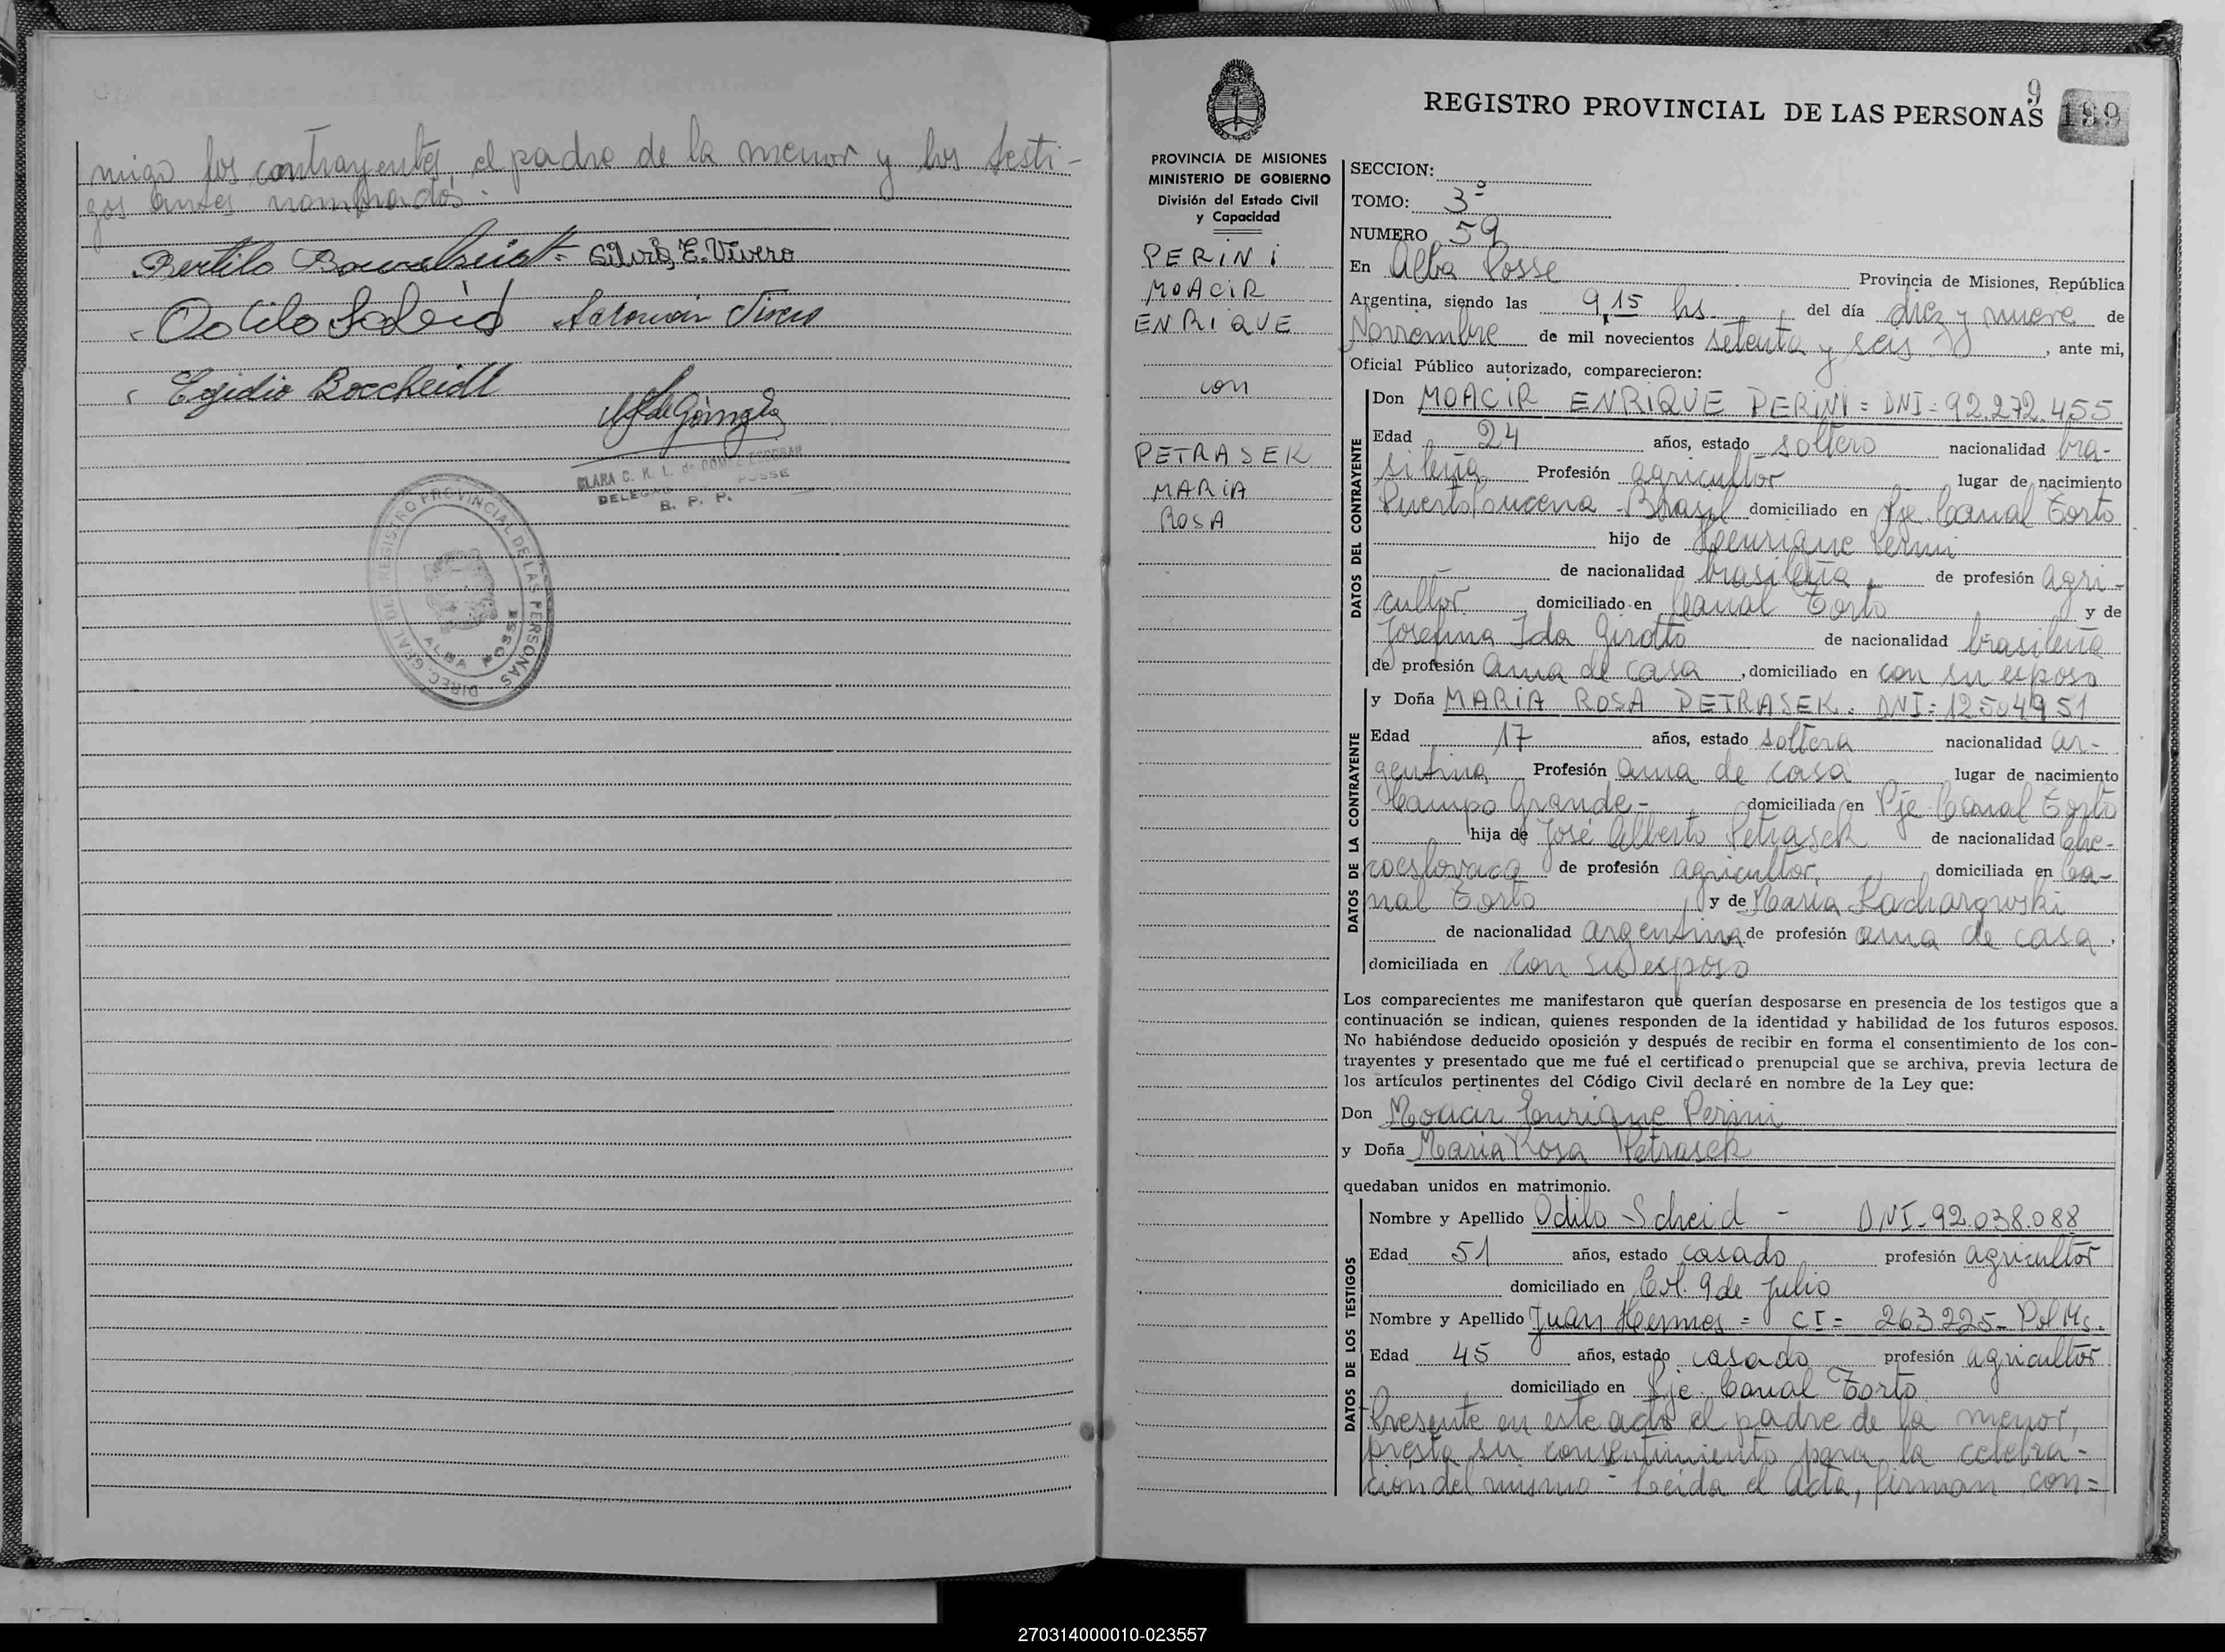 migo los contrayentes, el padre de la menor y los testi-
gos antes nombrados.
Silvia E. Vivero
Egidio Boccheidt
CLARA C. K. L. de GOMEZ ESCOBAR
POSSE
B. P. P.
DIREC. GRAL. DEL REGISTRO PROVINCIAL DE LAS PERSONAS
ALBA POSSE
REGISTRO PROVINCIAL DE LAS PERSONAS
9
199
PROVINCIA DE MISIONES
MINISTERIO DE GOBIERNO
División del Estado Civil
y Capacidad
PERINI
MOACIR
ENRIQUE
con
PETRASEK
MARIA
ROSA
SECCION:
TOMO: 3º
NUMERO 59
En Alba Posse Provincia de Misiones, República
Argentina, siendo las 9,15 hs. del día diez y nueve de
Noviembre de mil novecientos setenta y seis , ante mi,
Oficial Público autorizado, comparecieron:
DATOS DEL CONTRAYENTE
Don MOACIR ENRIQUE PERINI = DNI = 92.272.455
Edad 24 años, estado soltero nacionalidad bra-
sileña Profesión agricultor lugar de nacimiento
Puerto Lucena - Brasil domiciliado en Pje. Canal Torto
hijo de Henrique Perini
de nacionalidad brasileña, de profesión agri-
cultor domiciliado en Canal Torto y de
Josefina Ida Girotto de nacionalidad brasileña
de profesión ama de casa , domiciliado en con su esposo
DATOS DE LA CONTRAYENTE
y Doña MARIA ROSA PETRASEK. DNI = 12504951
Edad 17 años, estado soltera nacionalidad ar-
gentina Profesión ama de casa lugar de nacimiento
Campo Grande - domiciliada en Pje Canal Torto
hija de José Alberto Petrasek de nacionalidad Che-
coeslovaca de profesión agricultor, domiciliada en Ca-
nal Torto y de María Kachargwski
de nacionalidad argentina de profesión ama de casa,
domiciliada en con su esposo
Los comparecientes me manifestaron que querían desposarse en presencia de los testigos que a
continuación se indican, quienes responden de la identidad y habilidad de los futuros esposos.
No habiéndose deducido oposición y después de recibir en forma el consentimiento de los con-
trayentes y presentado que me fué el certificado prenupcial que se archiva, previa lectura de
los artículos pertinentes del Código Civil declaré en nombre de la Ley que:
Don Moacir Enrique Perini
y Doña María Rosa Petrasek
quedaban unidos en matrimonio.
DATOS DE LOS TESTIGOS
Nombre y Apellido Odilo Scheid - DNI - 92.038.088
Edad 51 años, estado casado profesión agricultor
domiciliado en Col. 9 de Julio
Nombre y Apellido Juan Hermes = CI = 263225 - Pol Ms.
Edad 45 años, estado casado profesión agricultor
domiciliado en Pje. Canal Torto
Presente en este acto el padre de la menor,
presta su consentimiento para la celebra-
ción del mismo - Leida el Acta, firman con=
270314000010-023557